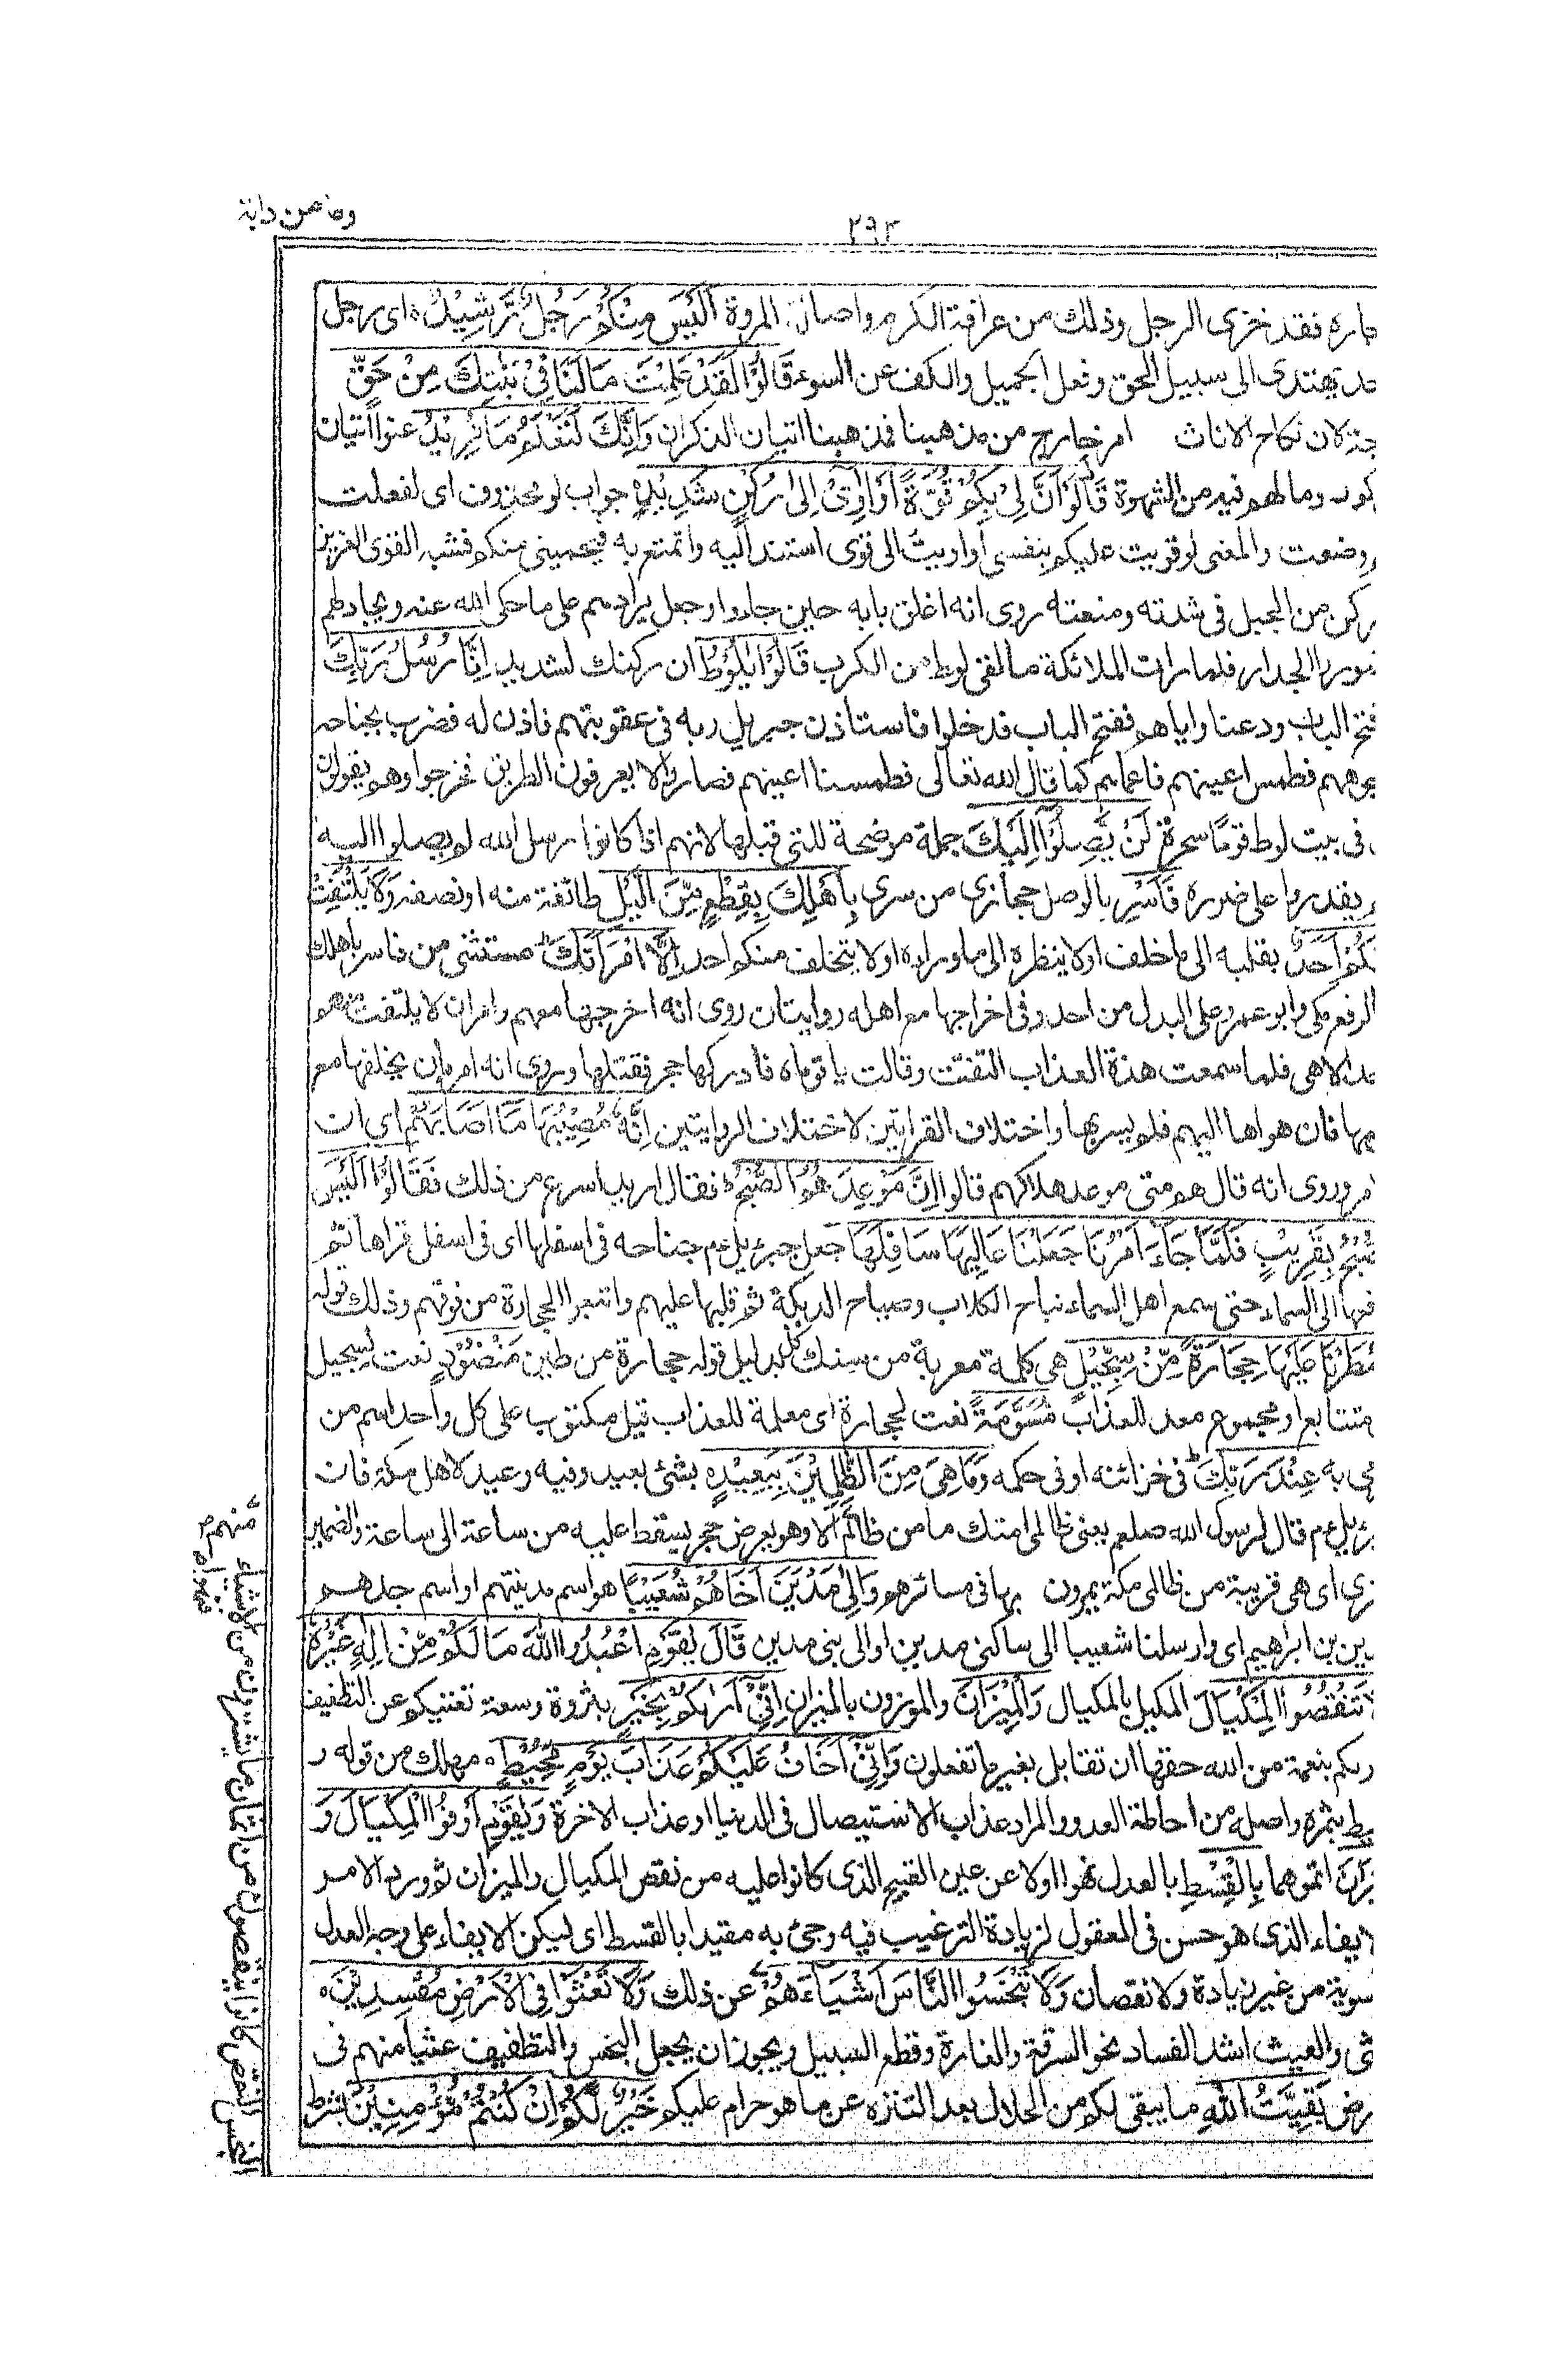 ومامن دابة
٢٩٣
جاره فقد خزى الرجل وذلك من عراقة الكرم واصالة المروة اَلَيْسَ مِنْكُمْ رَجُلٌ رَّشِيْدٌ ه اى رجل
حد يهتدى الى سبيل الحق وفعل الجميل والكف عن السوء قَالُوْا لَقَدْ عَلِمْتَ مَا لَنَا فِيْ بَنٰتِكَ مِنْ حَقٍّ
جة لان نكاح الاناث امر خارج من مذهبنا فمذهبنا اتيان الذكران وَاِنَّكَ لَتَعْلَمُ مَا نُرِيْدُ عنوا اتيان
كور وما لهم فيه من الشهوة قَالَ لَوْ اَنَّ لِيْ بِكُمْ قُوَّةً اَوْ اٰوِيْ اِلٰى رُكْنٍ شَدِيْدٍ ه جواب لو محذوف اى لفعلت
وضعت والمعنى لو قويت عليكم بنفسى او اويت الى قوى استند اليه واتمتع به فيحمينى منكم فشبه القوى العزيز
ركن من الجبل فى شدته ومنعته روى انه اغلق بابه حين جاءوا وجعل يرادهم على ما حكى الله عنه ويجادلهم
سوروا الجدار فلما رات الملائكة ما لقى لوط من الكرب قَالُوْا يٰلُوْطُ ان ركنك لشديد اِنَّا رُسُلُ رَبِّكَ
فتح الباب ودعنا واياهم ففتح الباب فدخلوا فاستاذن جبريل ربه فى عقوبتهم فاذن له فضرب بجناحه
جوههم فطمس اعينهم فاعماهم كما قال الله تعالى فطمسنا اعينهم فصاروا لا يعرفون الطريق فخرجوا وهم يقولون
فى بيت لوط قوما سحرة لَنْ يَّصِلُوْٓا اِلَيْكَ جملة موضحة للتى قبلها لانهم اذا كانوا رسل الله لم يصلوا اليه
يقدروا على ضرره فَاَسْرِ بالوصل حجازى من سرى بِاَهْلِكَ بِقِطْعٍ مِّنَ الَّيْلِ طائفة منه او نصفه وَلَا يَلْتَفِتْ
نْكُمْ اَحَدٌ بقلبه الى ما خلف او لا ينظر الى ما وراءه او لا يتخلف منكم احد اِلَّا امْرَاَتَكَ مستثنى من فاسر باهلك
الرفع مكى وابو عمرو على البدل من احد وفى اخراجها مع اهله روايتان روى انه اخرجها معهم وامر ان لا يلتفت منهم
حد الا هى فلما سمعت هذة العذاب التفتت وقالت يا قوماه فادركها حجر فقتلها وروى انه امر بان يخلفها مع
مها فان هواها اليهم فلم يسر بها واختلاف القراءتين لاختلاف الروايتين اِنَّهٗ مُصِيْبُهَا مَآ اَصَابَهُمْ اى ان
مر وروى انه قال لهم متى موعد هلاكهم قالوا اِنَّ مَوْعِدَهُمُ الصُّبْحُ فقال اريد اسرع من ذلك فَقَالُوْٓا اَلَيْسَ
صُّبْحُ بِقَرِيْبٍ فَلَمَّا جَآءَ اَمْرُنَا جَعَلْنَا عَالِيَهَا سَافِلَهَا جعل جبرئيل عم جناحه فى اسفلها اى فى اسفل قراها ثم
فعها الى السماء حتى سمع اهل السماء نباح الكلاب وصياح الديكة ثم قلبها عليهم واتبعوا الحجارة من فوقهم وذلك قوله
مْطَرْنَا عَلَيْهَا حِجَارَةً مِّنْ سِجِّيْلٍ هى كلمة معربة من سنك كل بدليل قوله حجارة من طين مَنْضُوْدٍ نعت لسجيل
متتابع او مجموع معد للعذاب مُسَوَّمَةً نعت لحجارة اى معلمة للعذاب قيل مكتوب على كل واحد اسم من
مى به عِنْدَ رَبِّكَ فى خزائنه او فى حكمه وَمَا هِيَ مِنَ الظّٰلِمِيْنَ بِبَعِيْدٍ ه بشئ بعيد وفيه وعيد لاهل مكة فان
برئيل عم قال لرسول الله صلعم يعنى ظالمى امتك ما من ظالم الا وهو بعرض حجر يسقط عليه من ساعة الى ساعة والضمير
قرى اى هى قريبة من ظالمى مكة يمرون بها فى مسائرهم وَاِلٰى مَدْيَنَ اَخَاهُمْ شُعَيْبًا هو اسم مدينتهم او اسم جدهم
دين بن ابراهيم اى وارسلنا شعيبا الى ساكنى مدين او الى بنى مدين قَالَ يٰقَوْمِ اعْبُدُوا اللّٰهَ مَا لَكُمْ مِّنْ اِلٰهٍ غَيْرُهٗ
لَا تَنْقُصُوا الْمِكْيَالَ المكيل بالمكيال وَالْمِيْزَانَ والموزون بالميزان اِنِّيْٓ اَرٰىكُمْ بِخَيْرٍ بثروة وسعة تغنيكم عن التطفيف
ريكم بنعمة من الله حقها ان تقابل بغير ما تفعلون وَاِنِّيْٓ اَخَافُ عَلَيْكُمْ عَذَابَ يَوْمٍ مُّحِيْطٍ ه مهلك من قوله و
يط بثمره واصله من احاطة العدو والمراد عذاب الاستيصال فى الدنيا او عذاب الاخرة وَيٰقَوْمِ اَوْفُوا الْمِكْيَالَ وَ
يْزَانَ اتموهما بِالْقِسْطِ بالعدل نهوا اولا عن عين القبيح الذى كانوا عليه من نقص المكيال والميزان ثم ورد الامر
لايفاء الذى هو حسن فى العقول لزيادة الترغيب فيه وجئ به مقيدا بالقسط اى ليكن الايفاء على وجه العدل
سوية من غير زيادة ولا نقصان وَلَا تَبْخَسُوا النَّاسَ اَشْيَآءَهُمْ عن ذلك وَلَا تَعْثَوْا فِى الْاَرْضِ مُفْسِدِيْنَ ه
ثى والعيث اشد الفساد نحو السرقة والغارة وقطع السبيل ويجوز ان يجعل البخس والتطفيف عثيا منهم فى
رض بَقِيَّتُ اللّٰهِ ما يبقى لكم من الحلال بعد التنزه عن ما هو حرام عليكم خَيْرٌ لَّكُمْ اِنْ كُنْتُمْ مُّؤْمِنِيْنَ بشرط
البخس النقص كانوا ينقصون من اثمان ما يشترون من الاشياء